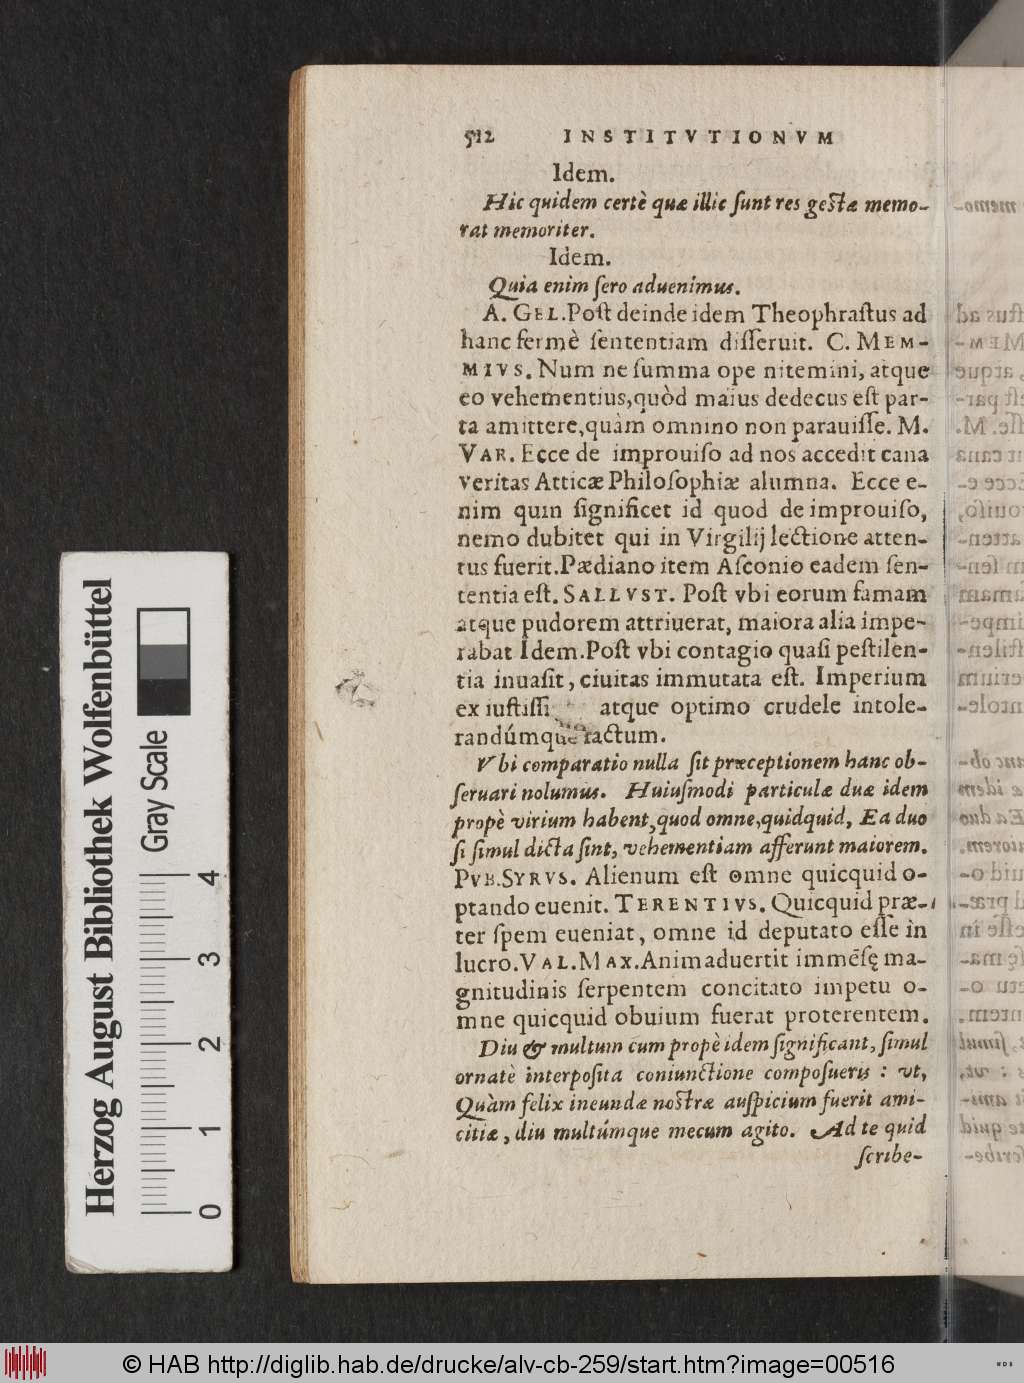 512 INSTITVTIONVM
Idem.
Hic quidem certè quæ illic ſunt res geſtæ memo-
rat memoriter.
Idem.
Quia enim ſero aduenimus.
A. GEL. Poſt deinde idem Theophraſtus ad
hanc fermè ſententiam diſſeruit. C. MEM-
MIVS. Num ne ſumma ope nitemini, atque
eo vehementius, quòd maius dedecus eſt par-
ta amittere, quàm omnino non parauiſſe. M.
VAR. Ecce de improuiſo ad nos accedit cana
veritas Atticæ Philoſophiæ alumna. Ecce e-
nim quin ſignificet id quod de improuiſo,
nemo dubitet qui in Virgilij lectione atten-
tus fuerit. Pædiano item Aſconio eadem ſen-
tentia eſt. SALLVST. Poſt vbi eorum famam
atque pudorem attriuerat, maiora alia impe-
rabat Idem. Poſt vbi contagio quaſi peſtilen-
tia inuaſit, ciuitas immutata eſt. Imperium
ex iuſtiſſi atque optimo crudele intole-
randúmque factum.
Vbi comparatio nulla ſit præceptionem hanc ob-
ſeruari nolumus. Huiuſmodi particulæ duæ idem
propè virium habent, quod omne, quidquid, Ea duo
ſi ſimul dicta ſint, vehementiam afferunt maiorem.
PVB. SYRVS. Alienum eſt omne quicquid o-
ptando euenit. TERENTIVS. Quicquid præ-
ter ſpem eueniat, omne id deputato eſſe in
lucro. VAL. MAX. Animaduertit immēſę ma-
gnitudinis ſerpentem concitato impetu o-
mne quicquid obuium fuerat proterentem.
Diu & multum cum propè idem ſignificant, ſimul
ornatè interpoſita coniunctione compoſueris : vt,
Quàm felix ineundæ noſtræ auſpicium fuerit ami-
citiæ, diu multúmque mecum agito. Ad te quid
ſcribe-
Herzog August Bibliothek Wolfenbüttel
Gray Scale
0 1 2 3 4
© HAB http://diglib.hab.de/drucke/alv-cb-259/start.htm?image=00516